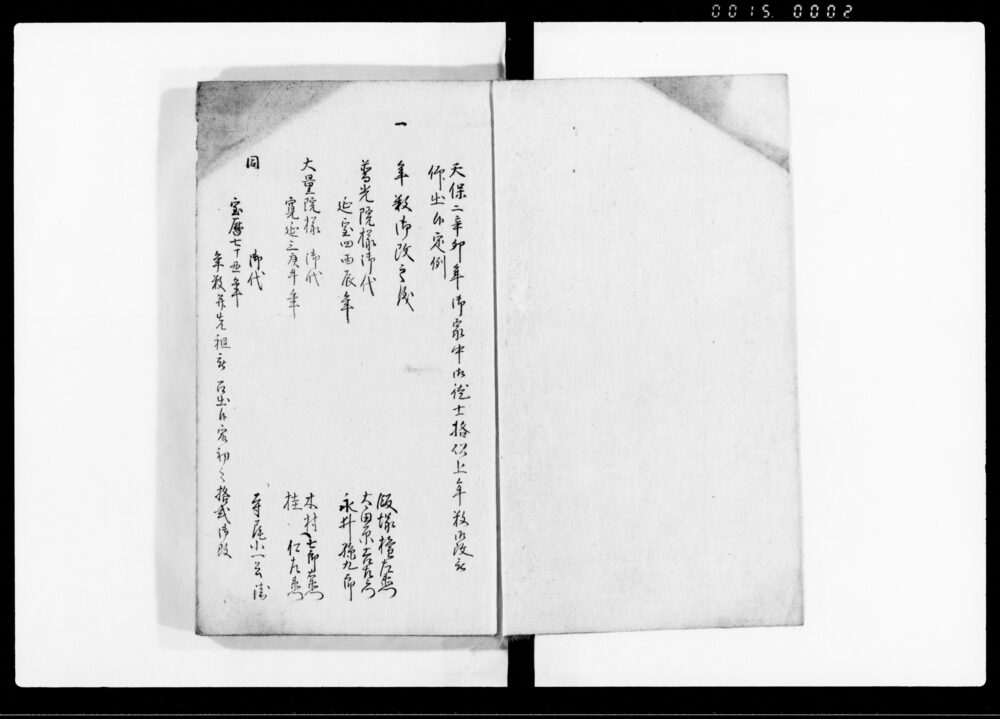 0015. 0002
天保二辛卯年御家中御徒士格以上年数御改被
仰出候定例
一
年数御改之儀
普光院様御代
延宝四丙辰年
飯塚権左衛門
大田原
永井孫九郎
大量院様 御代
寛延三庚午年
木村七郎兵衛
桂 仁左衛門
同 御代
宝暦七丁丑年
寺尾小一兵衛
年数并先祖被 召出候最初之格式御改